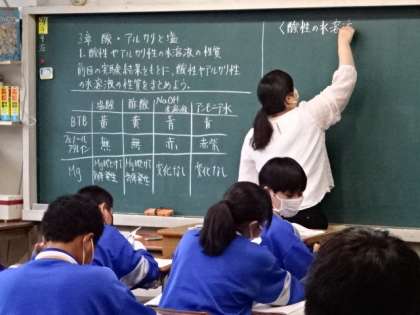 3章 酸・アルカリと塩
1. 酸性やアルカリ性の水溶液の性質
前回の実験結果をもとに、酸性やアルカリ性
の水溶液の性質をまとめよう。
塩酸 酢酸 NaOH水溶液 アンモニア水
BTB 黄 黄 青 青
フェノールフタレイン 無 無 赤 赤紫
Mg 変化なし 変化なし
〈酸性の水溶